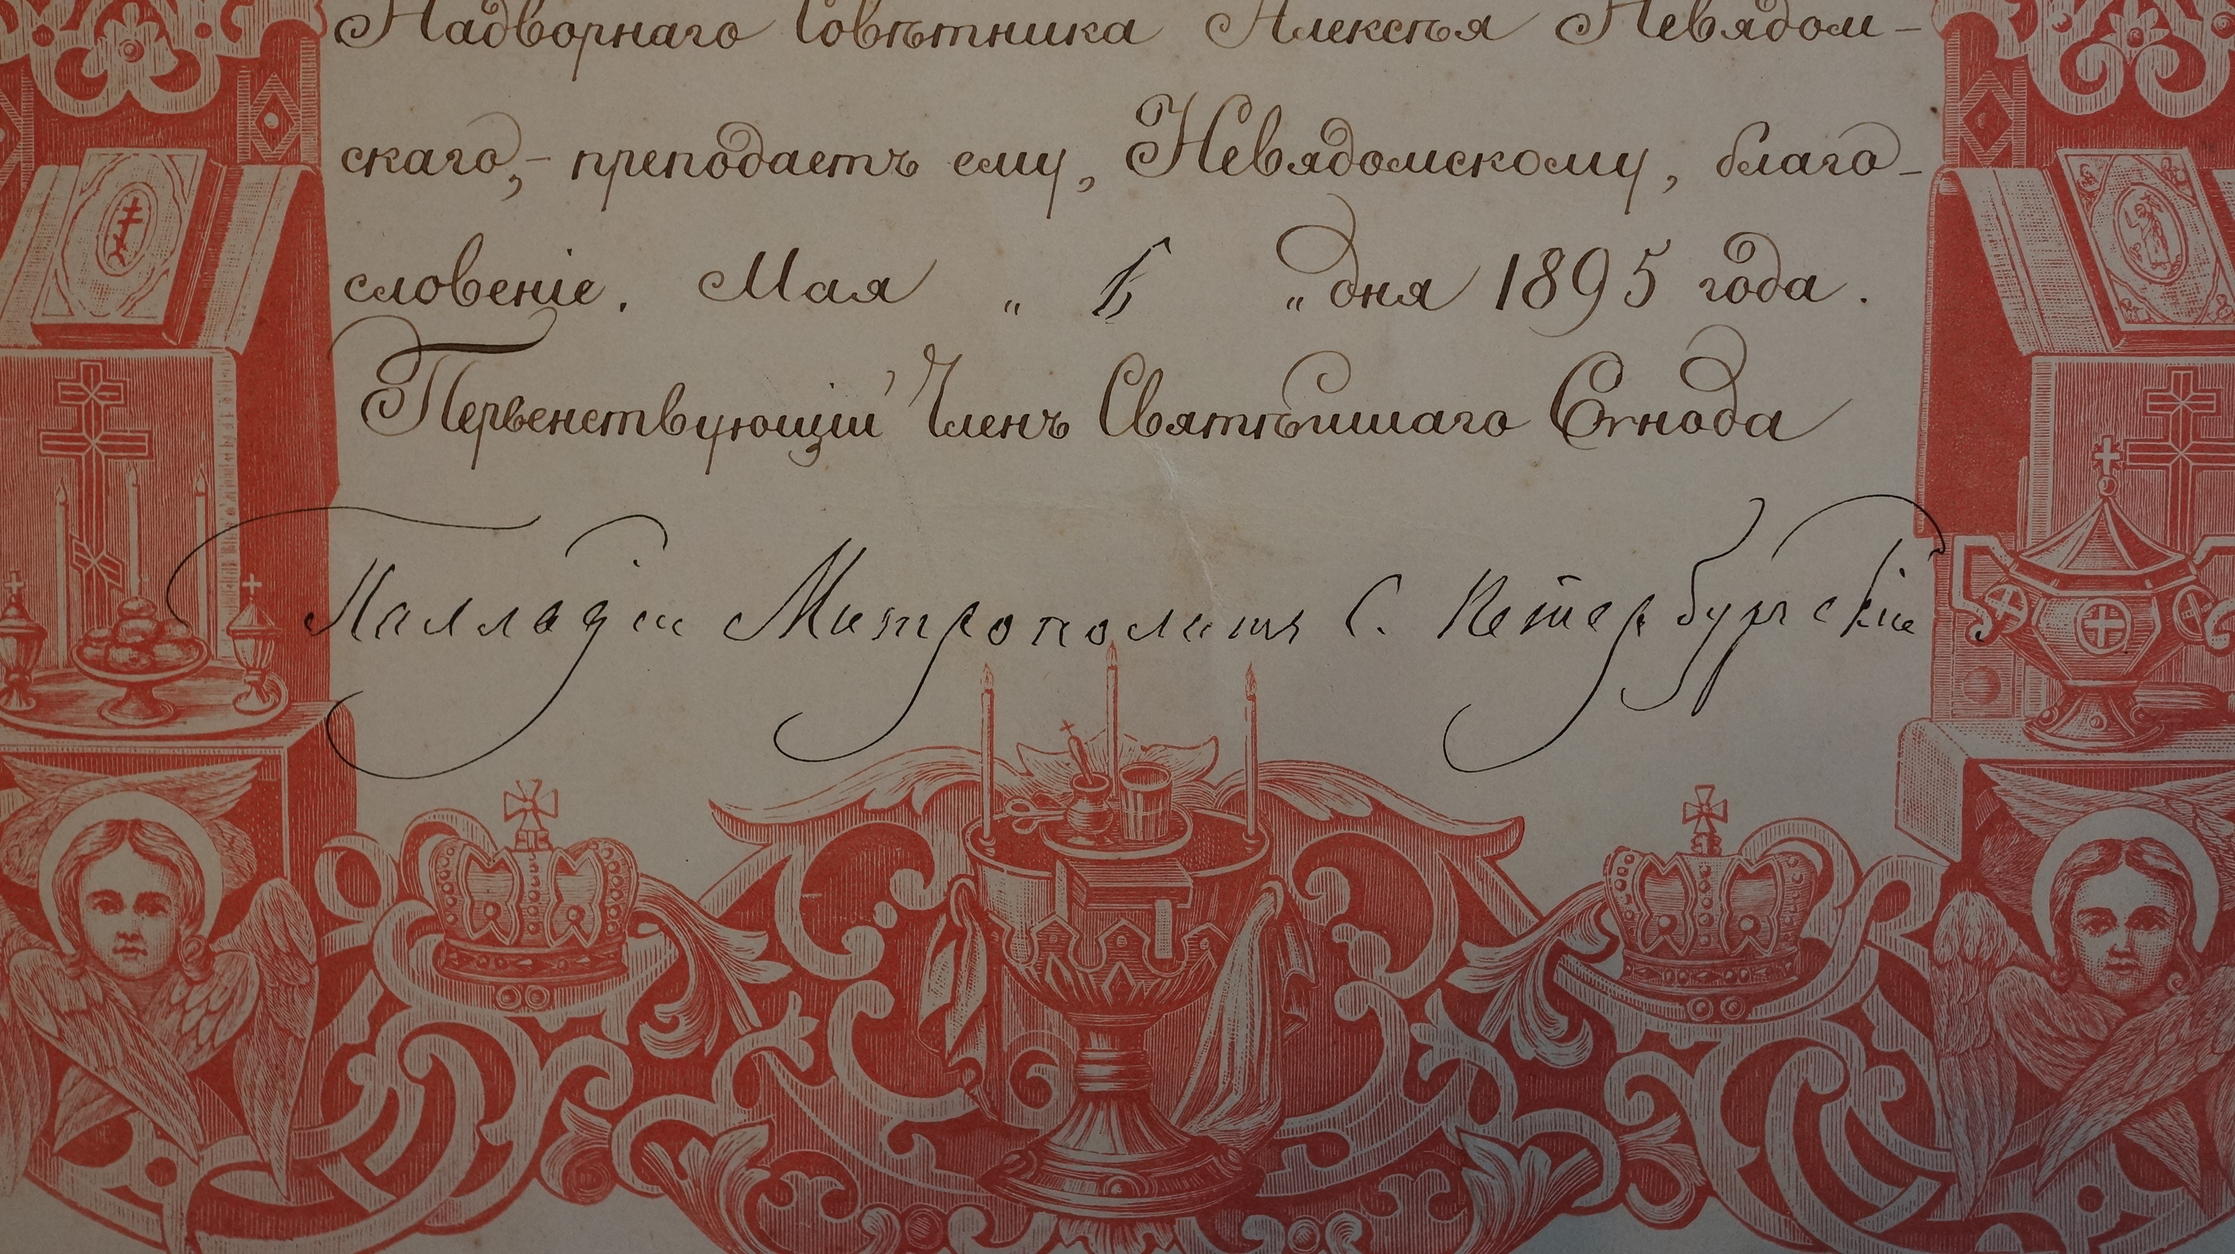 Надворнаго Совѣтника Алексѣя Невядом-
скаго,- преподаетъ ему, Невядомскому, благо-
словеніе. Мая „ „ дня 1895 года.
Первенствующій Членъ Святѣйшаго Сѵнода
Палладій Митрополитъ С. Петербургскій